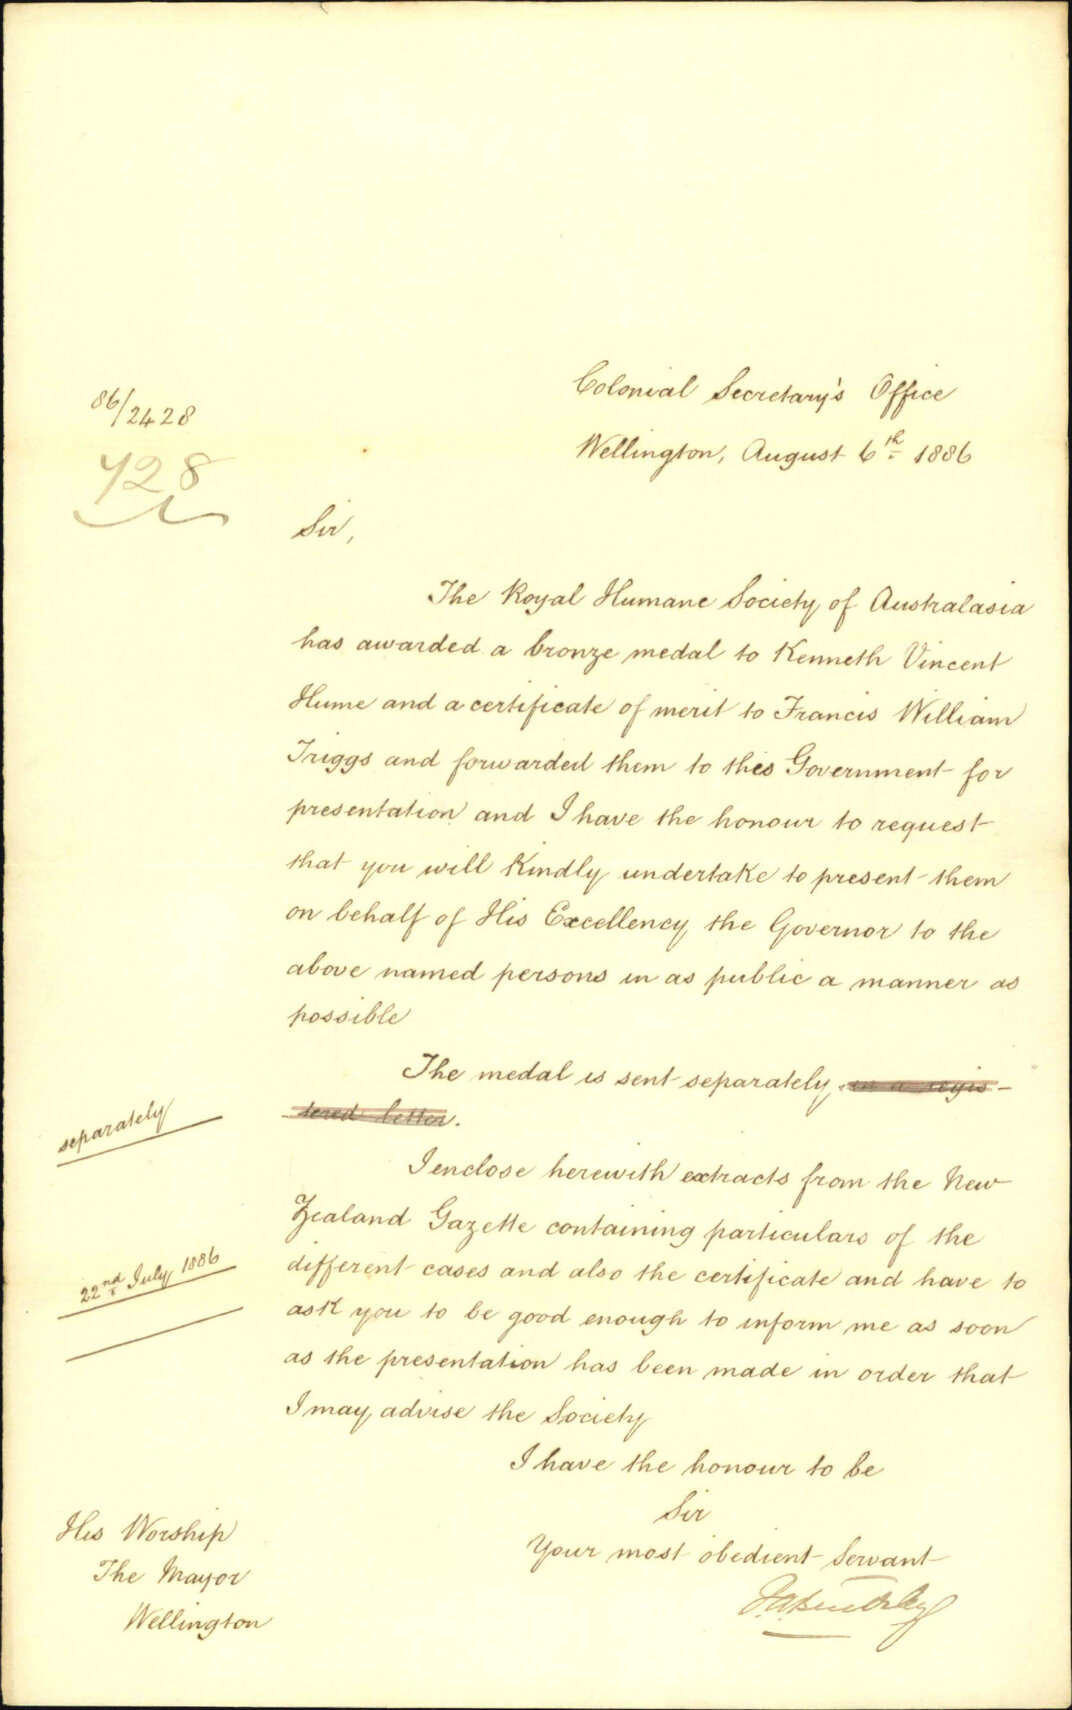 Colonial Secretary's Office
Wellington, August 6th 1886
86/2428
728
Sir,
The Royal Humane Society of Australasia
has awarded a bronze medal to Kenneth Vincent
Hume and a certificate of merit to Francis William
Triggs and forwarded them to this Government for
presentation and I have the honour to request
that you will kindly undertake to present them
on behalf of His Excellency the Governor to the
above named persons in as public a manner as
possible
The medal is sent separately in a regis-
tered letter.
separately
I enclose herewith extracts from the New
Zealand Gazette containing particulars of the
different cases and also the certificate and have to
22nd July 1886
ask you to be good enough to inform me as soon
as the presentation has been made in order that
I may advise the Society
I have the honour to be
Sir
Your most obedient Servant
His Worship
The Mayor
Wellington